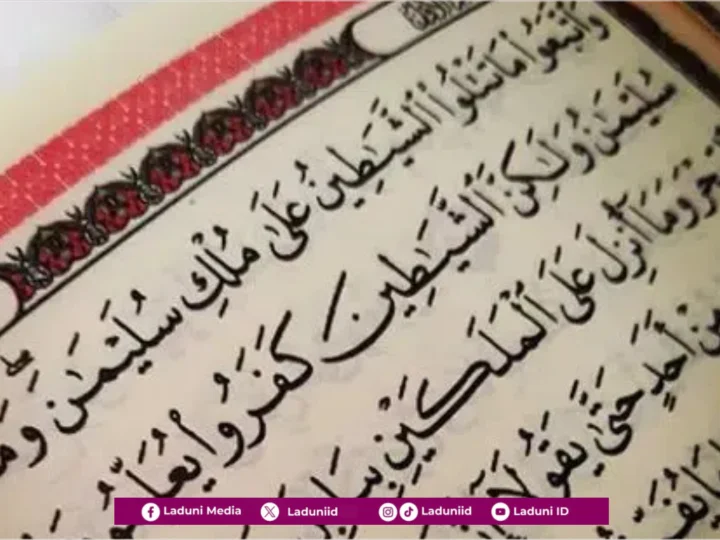 وَٱتَّبَعُوا۟ مَا تَتْلُوا۟ ٱلشَّيَـٰطِينُ عَلَىٰ مُلْكِ سُلَيْمَـٰنَ ۖ وَمَا
سُلَيْمَـٰنُ وَلَـٰكِنَّ ٱلشَّيَـٰطِينَ كَفَرُوا۟ يُعَلِّمُونَ
وَمَآ أُنزِلَ عَلَى ٱلْمَلَكَيْنِ بِبَابِلَ
مِنْ أَحَدٍ حَتَّىٰ يَقُولَآ
Laduni Media Laduniid Laduniid Laduni ID